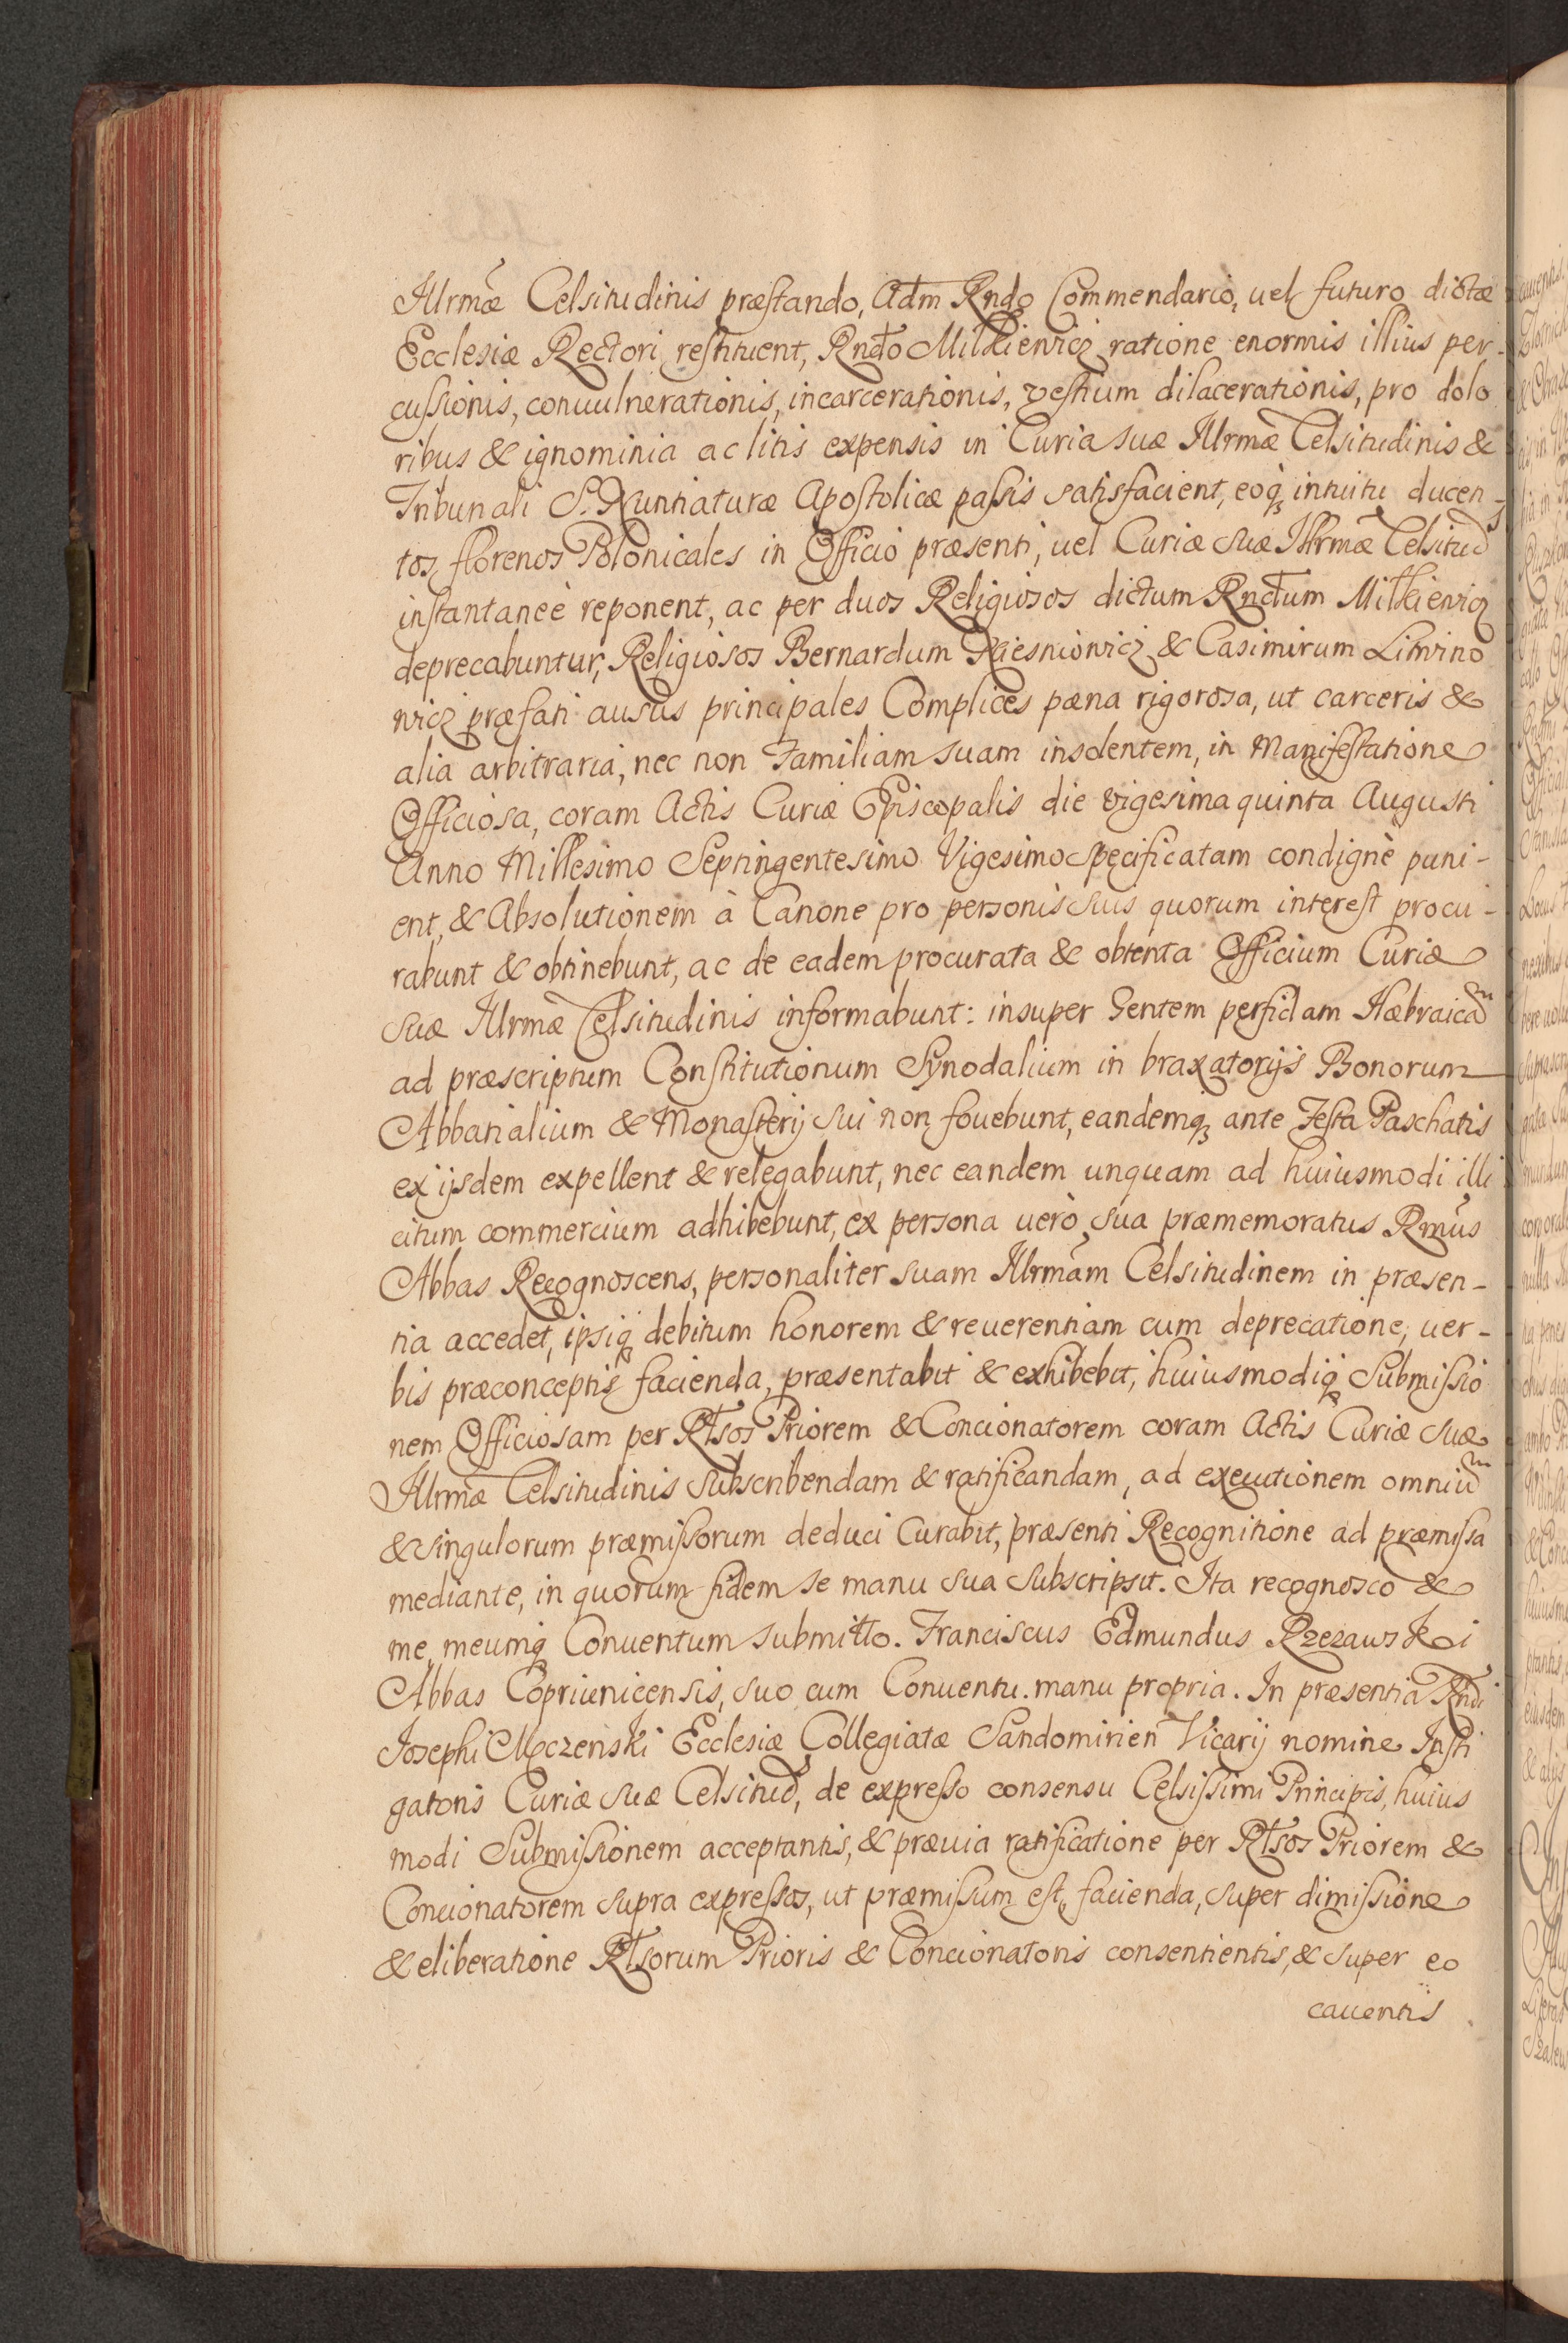 Illrmæ Celsitudinis præstando, Adm Rndo Commendario, uel futuro dictæ
Ecclesiæ Rectori restituent, Rndo Milkiewicz ratione enormis illius per-
cussionis, conuulnerationis, incarcerationis, vestium dilacerationis, pro dolo
ribus & ignominia ac litis expensis in Curia suæ Illrmæ Celsitudinis &
Tribunali S. Nuntiaturæ Apostolicæ passis satisfacient, eoq́ꝫ intuitu ducen-
tos florenos Polonicales in Officio præsenti, uel Curiæ suæ Illrmæ Celsitud
instantaneè reponent, ac per duos Religiosos dictum Rndum Milkiewicz
deprecabuntur, Religiosos Bernardum Kiesniowicz & Casimirum Litwino
wicz præfati ausus principales Complices pæna rigorosa, ut carceris &
alia arbitraria, nec non Familiam suam insolentem, in Manifestatione
Officiosa, coram Actis Curiæ Episcopalis die vigesima quinta Augusti
Anno Millesimo Septingentesimo Vigesimo specificatam condignè puni-
ent, & Absolutionem à Canone pro personis suis quorum interest procu-
rabunt & obtinebunt, ac de eadem procurata & obtenta Officium Curiæ
suæ Illrmæ Celsitudinis informabunt: insuper Gentem perfidam Hæbraicam
ad præscriptum Constitutionum Synodalium in braxatorijs Bonorum
Abbatialium & Monasterij sui non fouebunt, eandemqꝫ ante Festa Paschatis
ex ijsdem expellent & relegabunt, nec eandem unquam ad huiusmodi illi
citum commercium adhibebunt, ex persona uerò sua præmemoratus Rmus
Abbas Recognoscens, personaliter suam Illrmam Celsitudinem in præsen-
tia accedet, ipsiqꝫ debitum honorem & reuerentiam cum deprecatione, uer-
bis præconceptis facienda, præsentabit & exhibebit, huiusmodiqꝫ Submissio
nem Officiosam per Rlsos Priorem & Concionatorem coram Actis Curiæ suæ
Illrmæ Celsitudinis subscribendam & ratificandam, ad executionem omnium
& singulorum præmissorum deduci curabit, præsenti Recognitione ad præmissa
mediante, in quorum fidem se manu sua subscripsit. Ita recognosco &
me, meumqꝫ Conuentum submitto. Franciscus Edmundus Rzezawski
Abbas Copriunicensis, suo cum Conuentu. manu propria. In præsentia Rndi
Josephi Moczenski Ecclesiæ Collegiatæ Sandomirien Vicarij nomine Insti
gatoris Curiæ suæ Celsitud, de expresso consensu Celsissimi Principis, huius
modi Submissionem acceptantis, & præuia ratificatione per Rlsos Priorem &
Concionatorem supra expressos, ut præmissum est, facienda, super dimissione
& eliberatione Rlsorum Prioris & Concionatoris consentientis, & super eo
cauentis